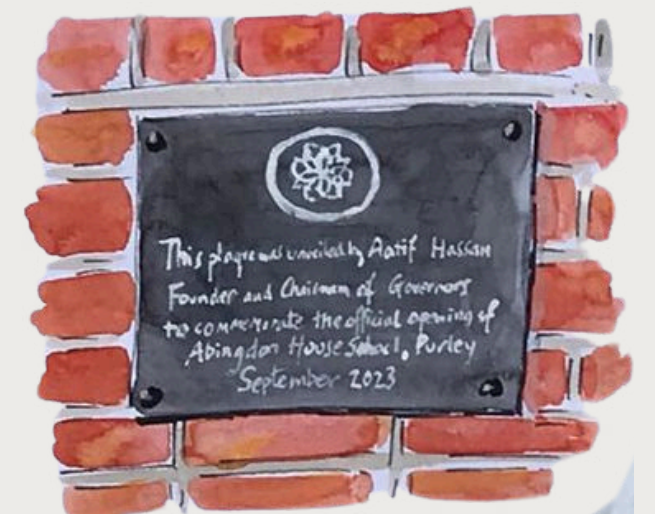 This plaque was unveiled by Aatif Hassan
Founder and Chairman of Governors
to commemorate the official opening of
Abingdon House School, Purley
September 2023